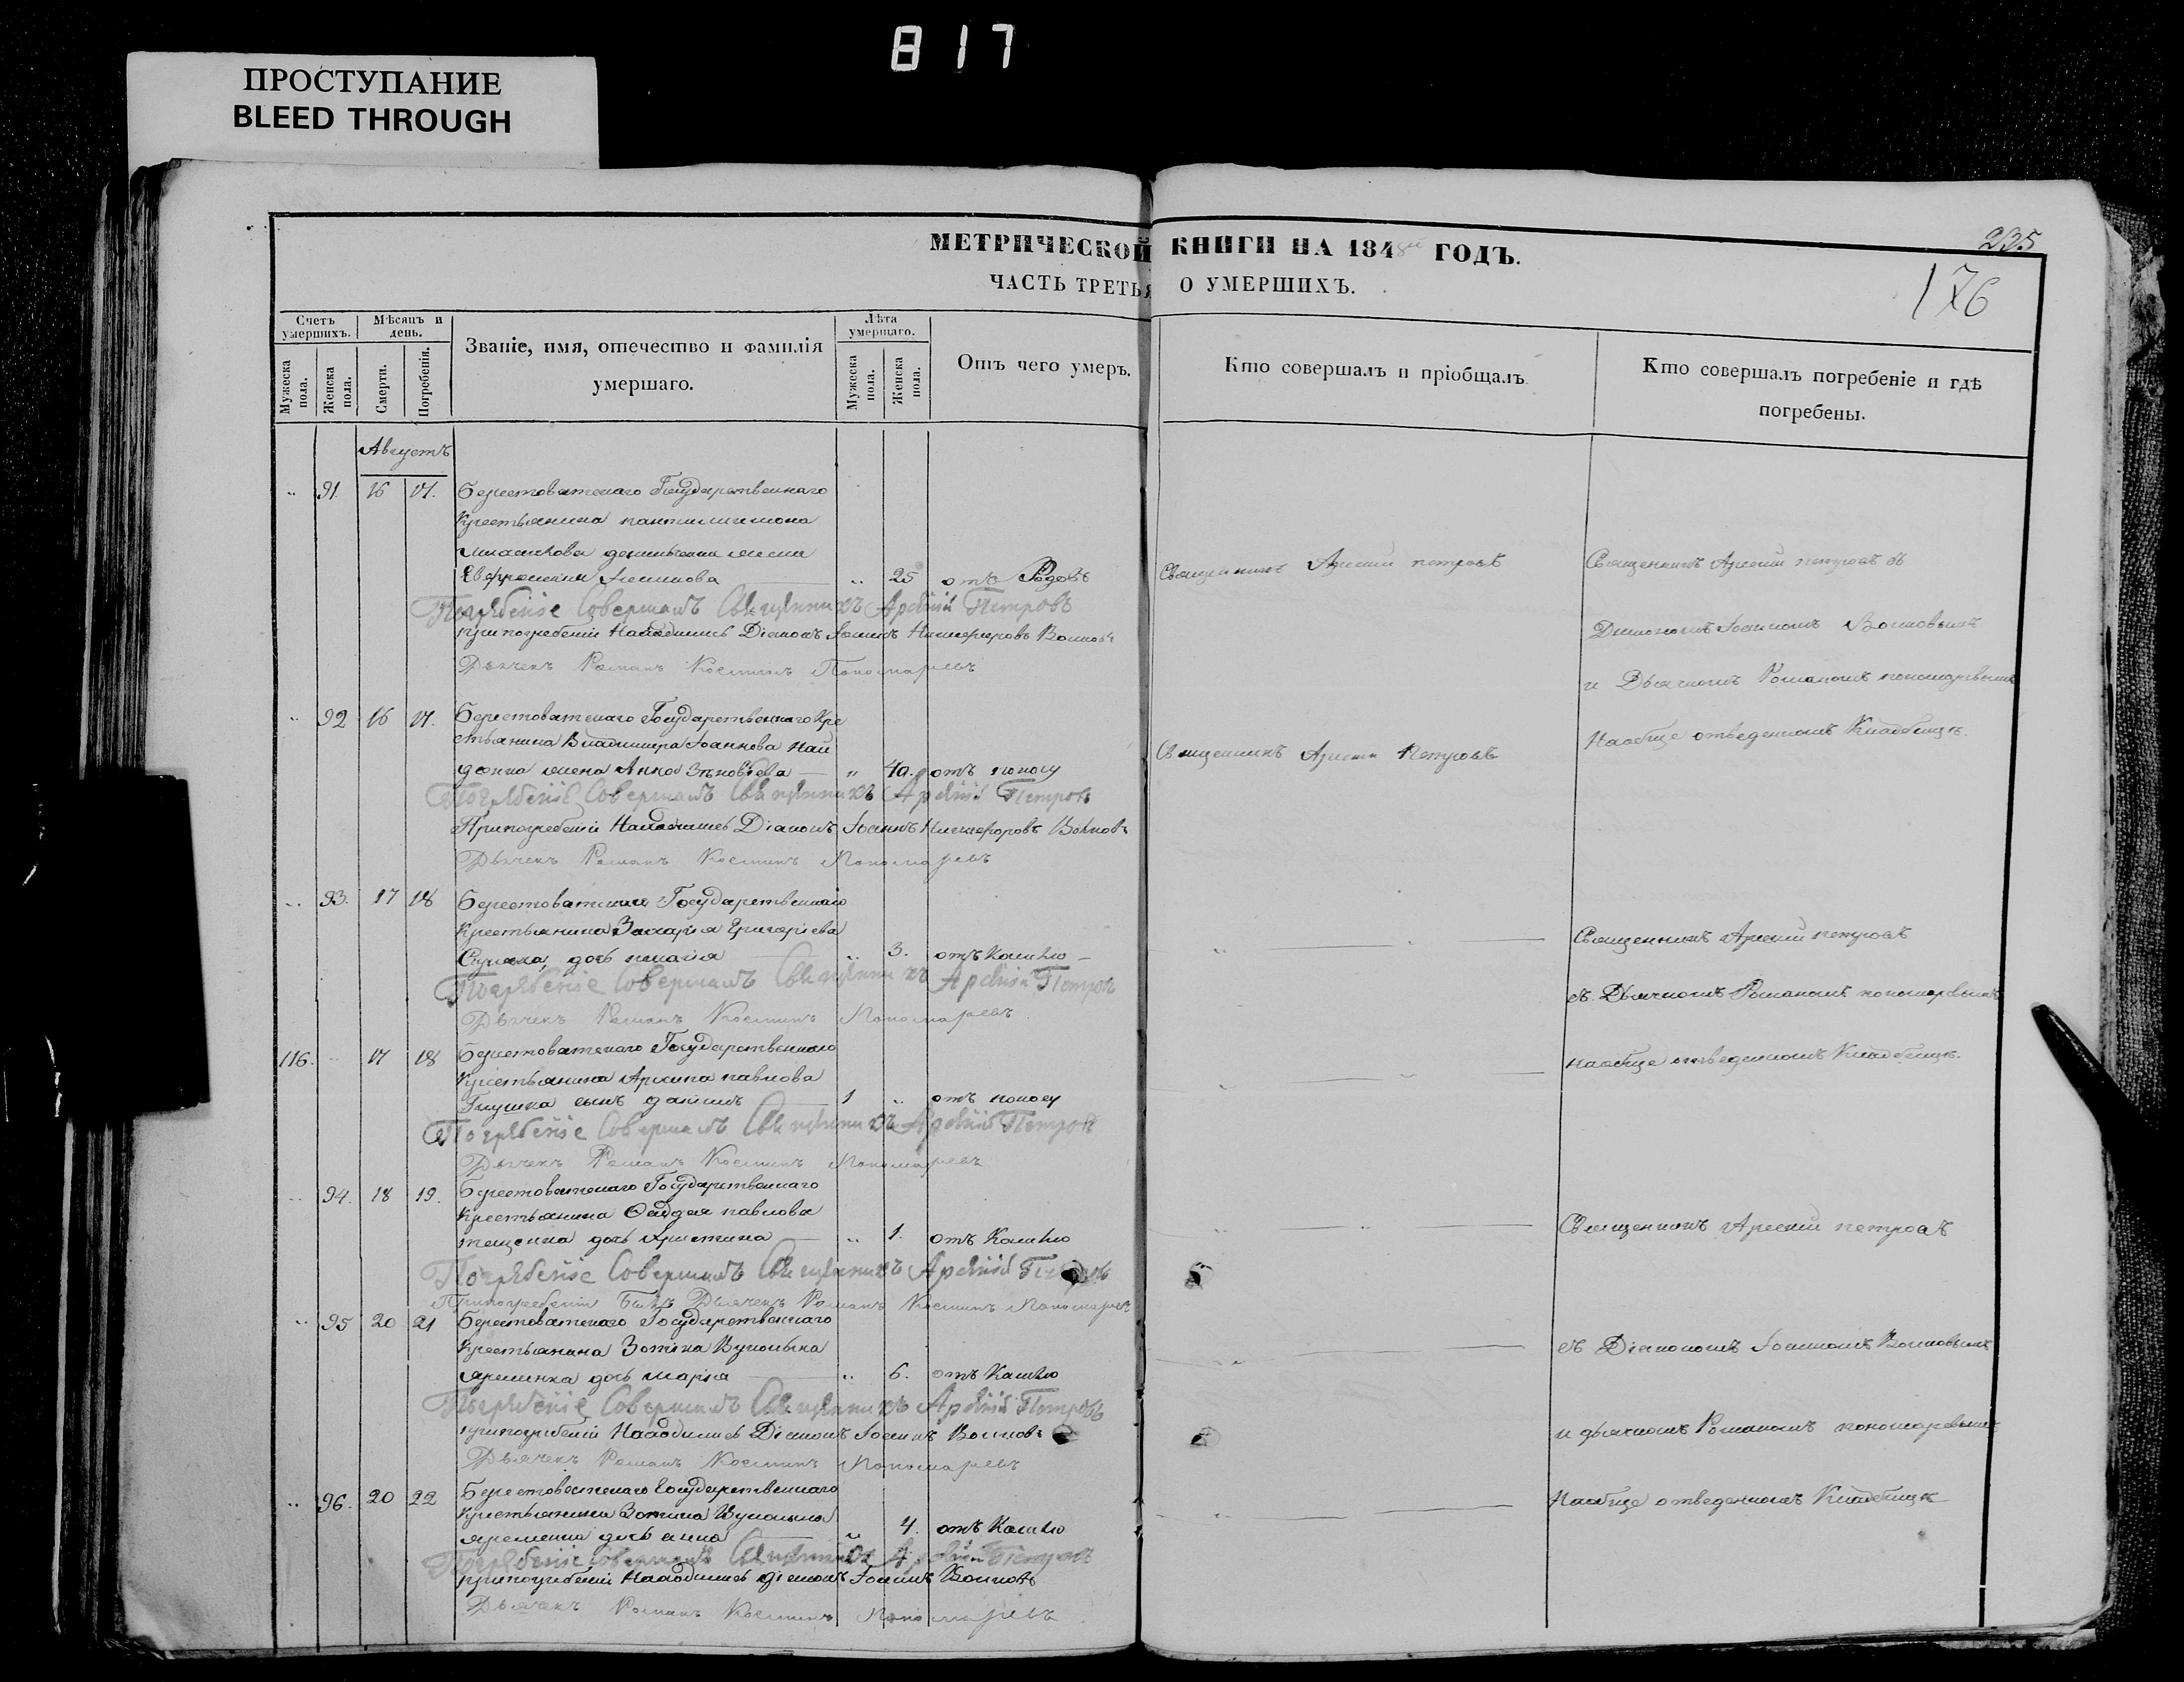 817
ПРОСТУПАНИЕ
BLEED THROUGH
235
176
МЕТРИЧЕСКОЙ КНИГИ НА 184 ГОДЪ.
ЧАСТЬ ТРЕТЬЯ О УМЕРШИХЪ.
Счетъ умершихъ.
Мужеска пола.
Женска пола.
Мѣсяцъ и день.
Смерти.
Погребенія.
Званіе, имя, отечество и фамилія умершаго.
Лѣта умершаго.
Мужеска пола.
Женска пола.
Отъ чего умеръ.
Кто совершалъ и пріобщалъ
Кто совершалъ погребеніе и гдѣ погребены.
Августъ
91. 16 17. Берестоватскаго Государственнаго
Крестьянина
жена
Евфросинія 25 отъ Родовъ
Священникъ Арсений петровъ
Священникъ Арсений петровъ съ
Погребеніе Совершалъ Священникъ Арсеній Петровъ
припогребеніи Находились Діаконъ Іоаннъ Никифоровъ Волковъ
Діакономъ Іоанномъ Волковымъ
Дьячекъ Романъ Костинъ Пономаревъ
и Дьячкомъ Романомъ пономаревымъ
92 16 17. Берестоватскаго Государственнаго Кре
стьянина Владимира Іоаннова Най
денка жена Анна Зѣновіева 40. отъ поносу
Священникъ Арсени Петровъ
Наобще отведенномъ Кладбищѣ.
Погребеніе Совершалъ Священникъ Арсеній Петровъ
Припогребеніи Находились Діаконъ Іоаннъ Никифоровъ Волковъ
Дьячекъ Романъ Костинъ Пономаревъ
93. 17 18 Берестоватскаго Государственнаго
Крестьянина Захарія Григоріева
дочь пелагія 3. отъ Кашлю
Священникъ Арсений петровъ
Погребеніе Совершалъ Священникъ Арсеній Петровъ
съ Дьячкомъ Романомъ пономаревымъ
Дьячекъ Романъ Костинъ Пономаревъ
116. 17 18 Берестоватскаго Государственнаго
Крестьянина павлова
Глушка сынъ даніилъ 1 отъ поносу
наобще отведенномъ Кладбищѣ.
Погребеніе Совершалъ Священникъ Арсеній Петровъ
Дьячекъ Романъ Костинъ Пономаревъ
94. 18 19. Берестоватскаго Государственнаго
Крестьянина Фаддея павлова
дочь Христина 1. отъ Кашлю
Священникъ Арсений петровъ
Погребеніе Совершалъ Священникъ Арсеній
Припогребеніи Былъ Дьячекъ Романъ Костинъ Пономаревъ
95 20 21 Берестоватскаго Государственнаго
Крестьянина Зотика
яременка дочь марія 6. отъ Кашлю
съ Діакономъ Іоанномъ Волковымъ
Погребеніе Совершалъ Священникъ Арсеній Петровъ
припогребеніи Находились Діаконъ Іоаннъ Волковъ
и дьячкомъ Романомъ пономаревымъ
Дьячекъ Романъ Костинъ Пономаревъ
96. 20 22 Берестоватскаго Государственнаго
Крестьянина Зотика
яременка дочь анна 4. отъ Кашлю
Наобще отведенномъ Кладбищѣ
Погребеніе Совершалъ Священникъ Арсеній Петровъ
припогребеніи Находились діаконъ Іоаннъ Волковъ
Дьячекъ Романъ Костинъ Пономаревъ